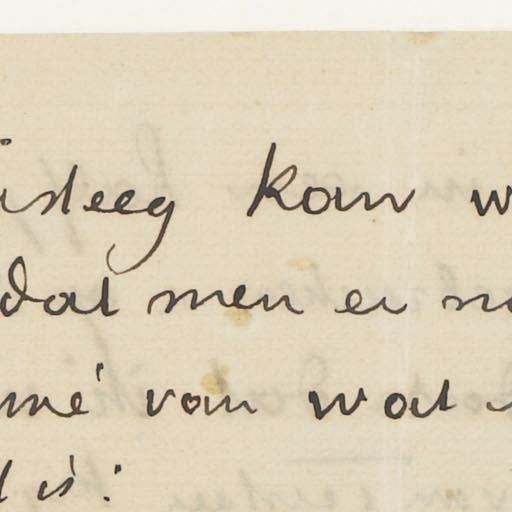 isteeg kan w
dat men er n
mé van wat
t is: